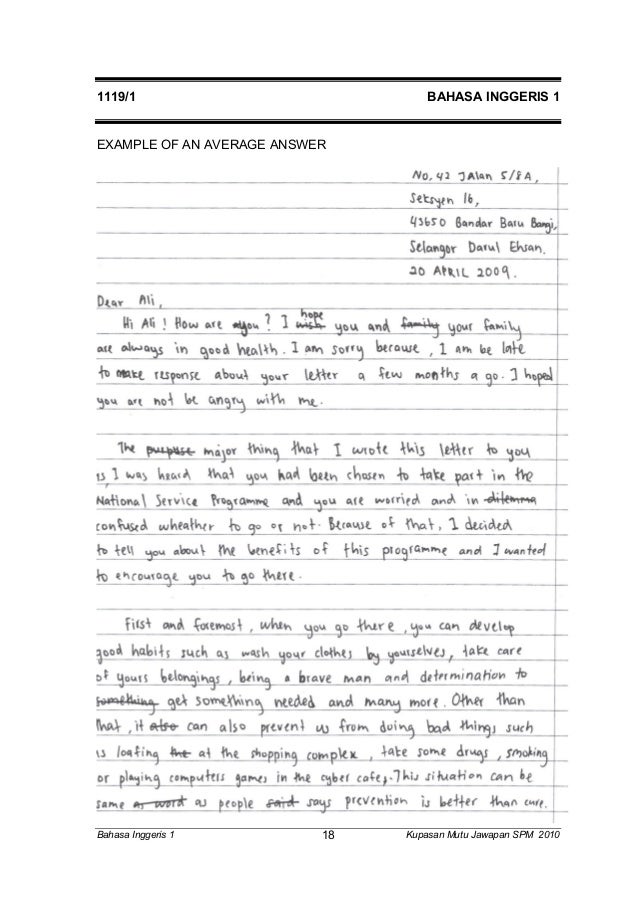 1119/1 BAHASA INGGERIS 1
EXAMPLE OF AN AVERAGE ANSWER
No. 42 Jalan 5/8A,
Seksyen 16,
43650 Bandar Baru Bangi,
Selangor Darul Ehsan.
20 APRIL 2009.
Dear Ali,
Hi Ali! How are you? I wish hope you and family your family
are always in good health. I am sorry because, I am be late
to make response about your letter a few months a go. I hoped
you are not be angry with me.
The purpuse major thing that I wrote this letter to you
is, I was heard that you had been chosen to take part in the
National Service Programme and you are worried and in dilemma
confused wheather to go or not. Because of that, I decided
to tell you about the benefits of this programme and I wanted
to encourage you to go there.
First and foremost, when you go there, you can develop
good habits such as wash your clothes by yourselves, take care
of yours belongings, being a brave man and determination to
something get something needed and many more. Other than
that, it also can also prevent us from doing bad things such
is loafing the at the shopping complex, take some drugs, smoking
or playing computers games in the cyber cafe. This situation can be
same as word as people said says prevention is better than cure.
Bahasa Inggeris 1 18 Kupasan Mutu Jawapan SPM 2010